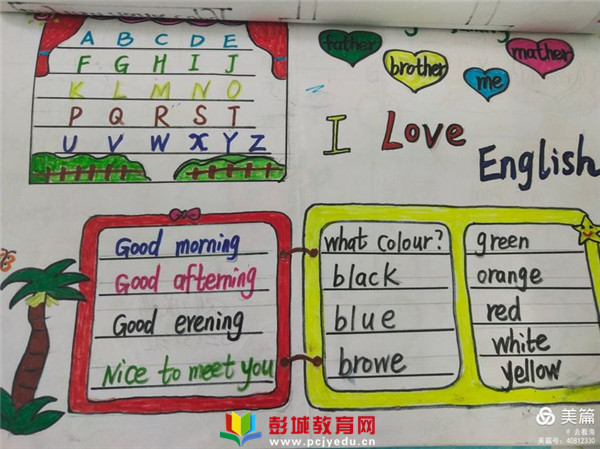 A B C D E
F G H I J
K L M N O
P Q R S T
U V W X Y Z
father
brother
me
mather
I Love
English
Good morning
Good afterning
Good evening
Nice to meet you
what colour?
black
blue
browe
green
orange
red
white
yellow
彭城教育网
www.pcjyedu.cn
美篇
@去教海
美篇号：40812330